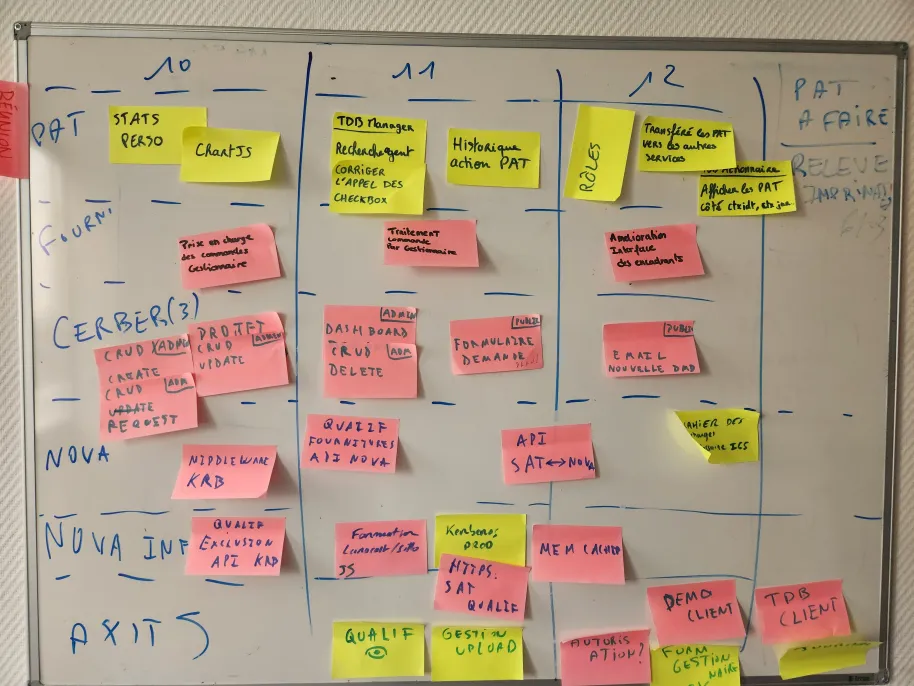 10
11
12
PAT
A FAIRE
RELEVE
RÉUNION
PAT
STATS
PERSO
ChartJS
TDB Manager
Recherche agent
CORRIGER
L'APPEL DES
CHECKBOX
Historique
action PAT
RÔLES
Transféré les PAT
vers les autres
services
Afficher les PAT
côté
FOURNI
Prise en charge
des commandes
Gestionnaire
Traitement
Commande
Par Gestionnaire
Amelioration
Interface
des encadrants
CERBER(3)
CRUD
CREATE
CRUD ADM
UPDATE
REQUEST
CRUD
UPDATE
ADMIN
DASHBOARD
CRUD ADM
DELETE
PUBLIC
FORMULAIRE
DEMANDE
EMAIL
NOUVELLE DMD
NOVA
MIDDLEWARE
KRB
QUALIF
FOURNITURES
API NOVA
API
SAT↔NOVA
CAHIER DES
NOVA INF
QUALIF
EXCLUSION
API KRB
Formation
JS
Kerberos
PROD
HTTPS
SAT
QUALIF
MEMCACHED
AXITS
QUALIF
GESTION
UPLOAD
AUTORIS
ATION?
DEMO
CLIENT
FORM
GESTION
NAIRE
TDB
CLIENT